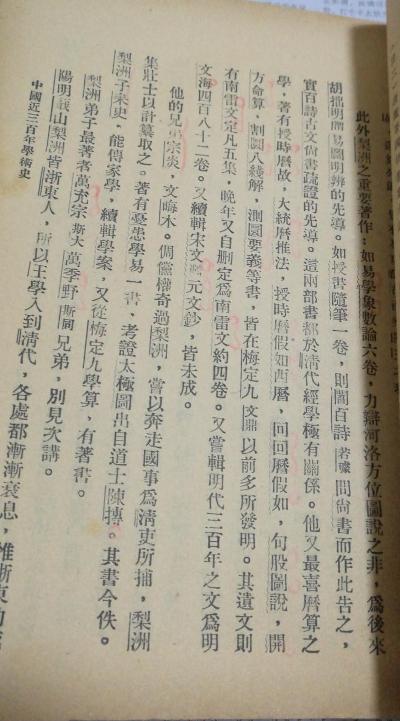 此外梨洲之重要著作，如易學象數論六卷，力辯河洛方位圖說之非，爲後來
胡朏明渭易圖明辨的先導。如授書隨筆一卷，則閻百詩若璩問尙書而作此告之，
實百詩古文尙書疏證的先導。這兩部書都於清代經學極有關係。他又最喜曆算之
學，著有授時曆故，大統曆推法，授時曆假如西曆，回回曆假如，句股圖說，開
方命算，割圜八綫解，測圜要義等書，皆在梅定九文鼎以前多所發明。其遺文則
有南雷文定凡五集，晚年又自删定爲南雷文約四卷。又嘗輯明代三百年之文爲明
文海四百八十二卷。又續輯宋文鑑元文鈔，皆未成。
他的兄弟宗炎，文晦木。倜儻權奇過梨洲，嘗以奔走國事爲清吏所捕，梨洲
集壯士以計篡取之。著有憂患學易一書，考證太極圖出自道士陳摶。其書今佚。
梨洲子耒史，能傳家學，續輯學案，又從梅定九學算，有著書。
梨洲弟子最著者萬充宗斯大萬季野斯同兄弟，別見次講。
陽明蕺山梨洲皆浙東人，所以王學入到清代，各處都漸漸衰息，惟浙東的
中國近三百年學術史